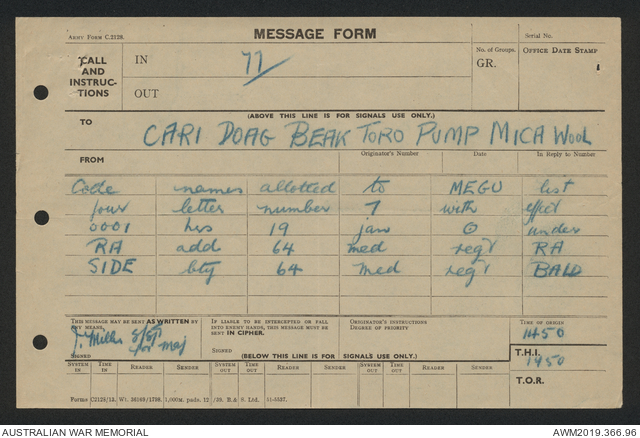 ARMY FORM C.2128.
MESSAGE FORM
Serial No.
CALL AND INSTRUC-TIONS
IN
77
No. of Groups.
GR.
OFFICE DATE STAMP
OUT
(ABOVE THIS LINE IS FOR SIGNALS USE ONLY.)
TO
CARI DOAG BEAK TORO PUMP MICA WOOL
FROM
Originator's Number
Date
In Reply to Number
Code names allotted to MEGU list
four letter number 7 with effect
0001 hrs 19 jan ⊙ under
RA add 64 med regt RA
SIDE bty 64 med regt BALD
THIS MESSAGE MAY BE SENT AS WRITTEN BY ANY MEANS.
J. Miller S/Sjt
for Maj
SIGNED
IF LIABLE TO BE INTERCEPTED OR FALL INTO ENEMY HANDS, THIS MESSAGE MUST BE SENT IN CIPHER.
SIGNED
ORIGINATOR'S INSTRUCTIONS
DEGREE OF PRIORITY
TIME OF ORIGIN
1450
(BELOW THIS LINE IS FOR SIGNALS USE ONLY.)
T.H.I.
1950
SYSTEM IN
TIME IN
READER
SENDER
SYSTEM OUT
TIME OUT
READER
SENDER
SYSTEM OUT
TIME OUT
READER
SENDER
T.O.R.
Forms C2128/13. Wt. 36169/1738. 1,000m. pads. 12/39. B. & S. Ltd. 51-5537.
AUSTRALIAN WAR MEMORIAL
AWM2019.366.96